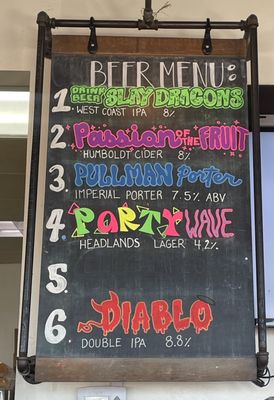 BEER MENU:
1 DRINK BEER SLAY DRAGONS
WEST COAST IPA 8%
2. Passion OF THE FRUIT
HUMBOLDT CIDER 8%
3. PULLMAN Porter
IMPERIAL PORTER 7.5% ABV
4. PORTY WAVE
HEADLANDS LAGER 4.2%
5.
6. DIABLO
DOUBLE IPA 8.8%